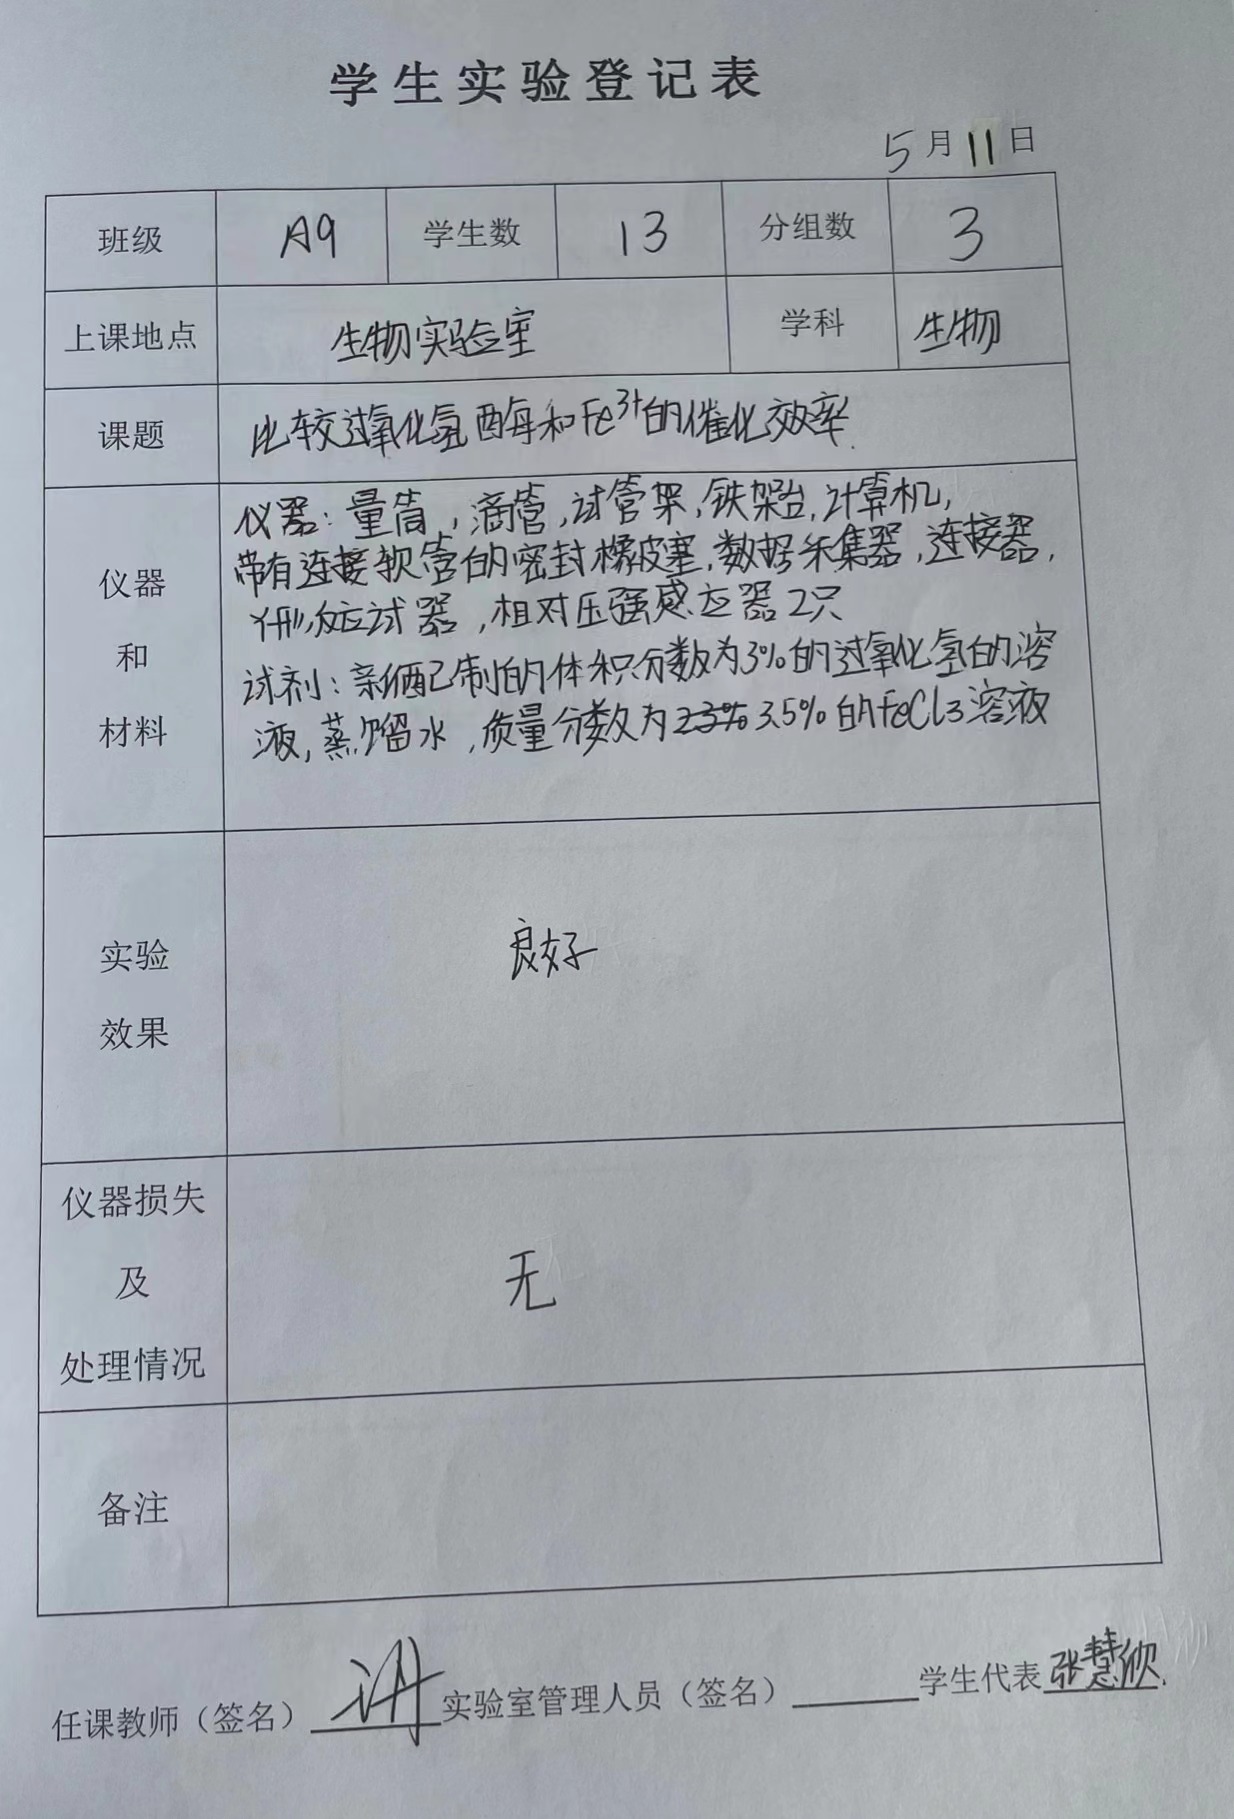 学生实验登记表
5月11日
班级 A9 学生数 13 分组数 3
上课地点 生物实验室 学科 生物
课题 比较过氧化氢酶和Fe³⁺的催化效率.
仪器
和
材料
仪器:量筒,滴管,试管架,铁架台,计算机,
带有连接软管的密封橡皮塞,数据采集器,连接器,
Y形反应试器,相对压强感应器2只
试剂:新配制的体积分数为3%的过氧化氢的溶
液,蒸馏水,质量分数为3.5%的FeCl3溶液
实验
效果
良好
仪器损失
及
处理情况
无
备注
任课教师(签名) 实验室管理人员(签名) 学生代表 张慧欣.